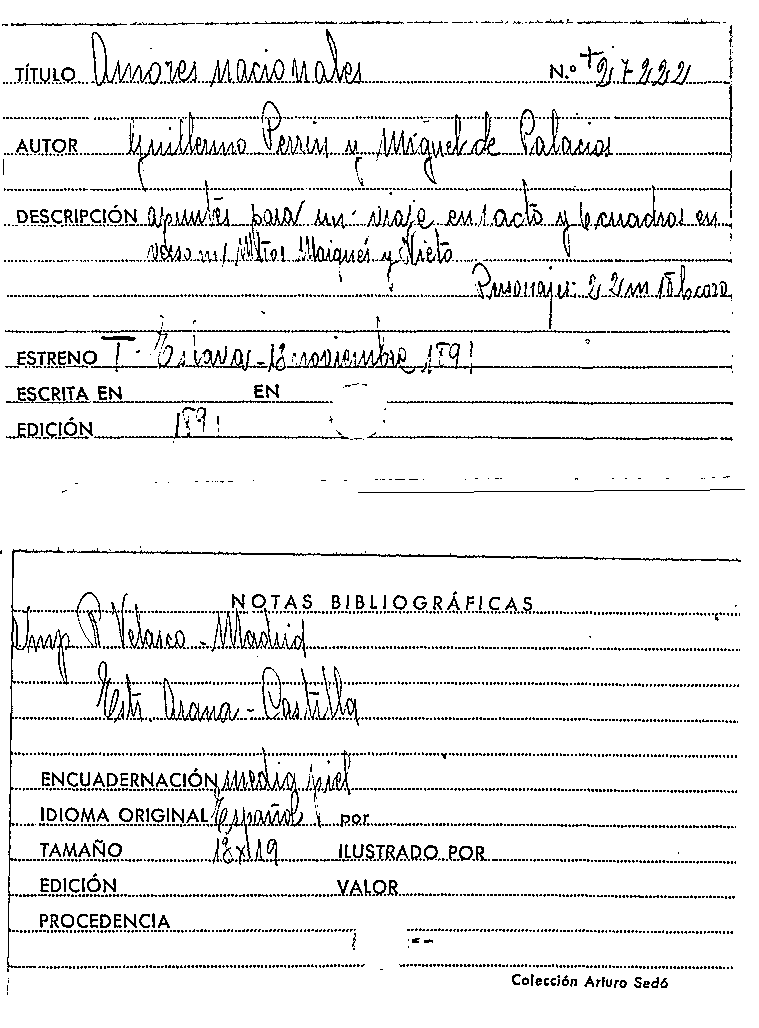 TÍTULO Amores nacionales N.º +27222
AUTOR Guillermo Perrin y Miguel de Palacios
DESCRIPCIÓN apuntes para un viaje en 1 acto y 6 cuadros en
verso m/ Mtros Maiques y Nieto
Personajes: 22 m 18 h coro
ESTRENO T. Eslava - 13 noviembre 1891
ESCRITA EN EN
EDICIÓN 1891
NOTAS BIBLIOGRÁFICAS
Imp R Velasco - Madrid
Estr. Arana - Castilla
ENCUADERNACIÓN media piel
IDIOMA ORIGINAL Español por
TAMAÑO 13x19 ILUSTRADO POR
EDICIÓN VALOR
PROCEDENCIA
Colección Arturo Sedó